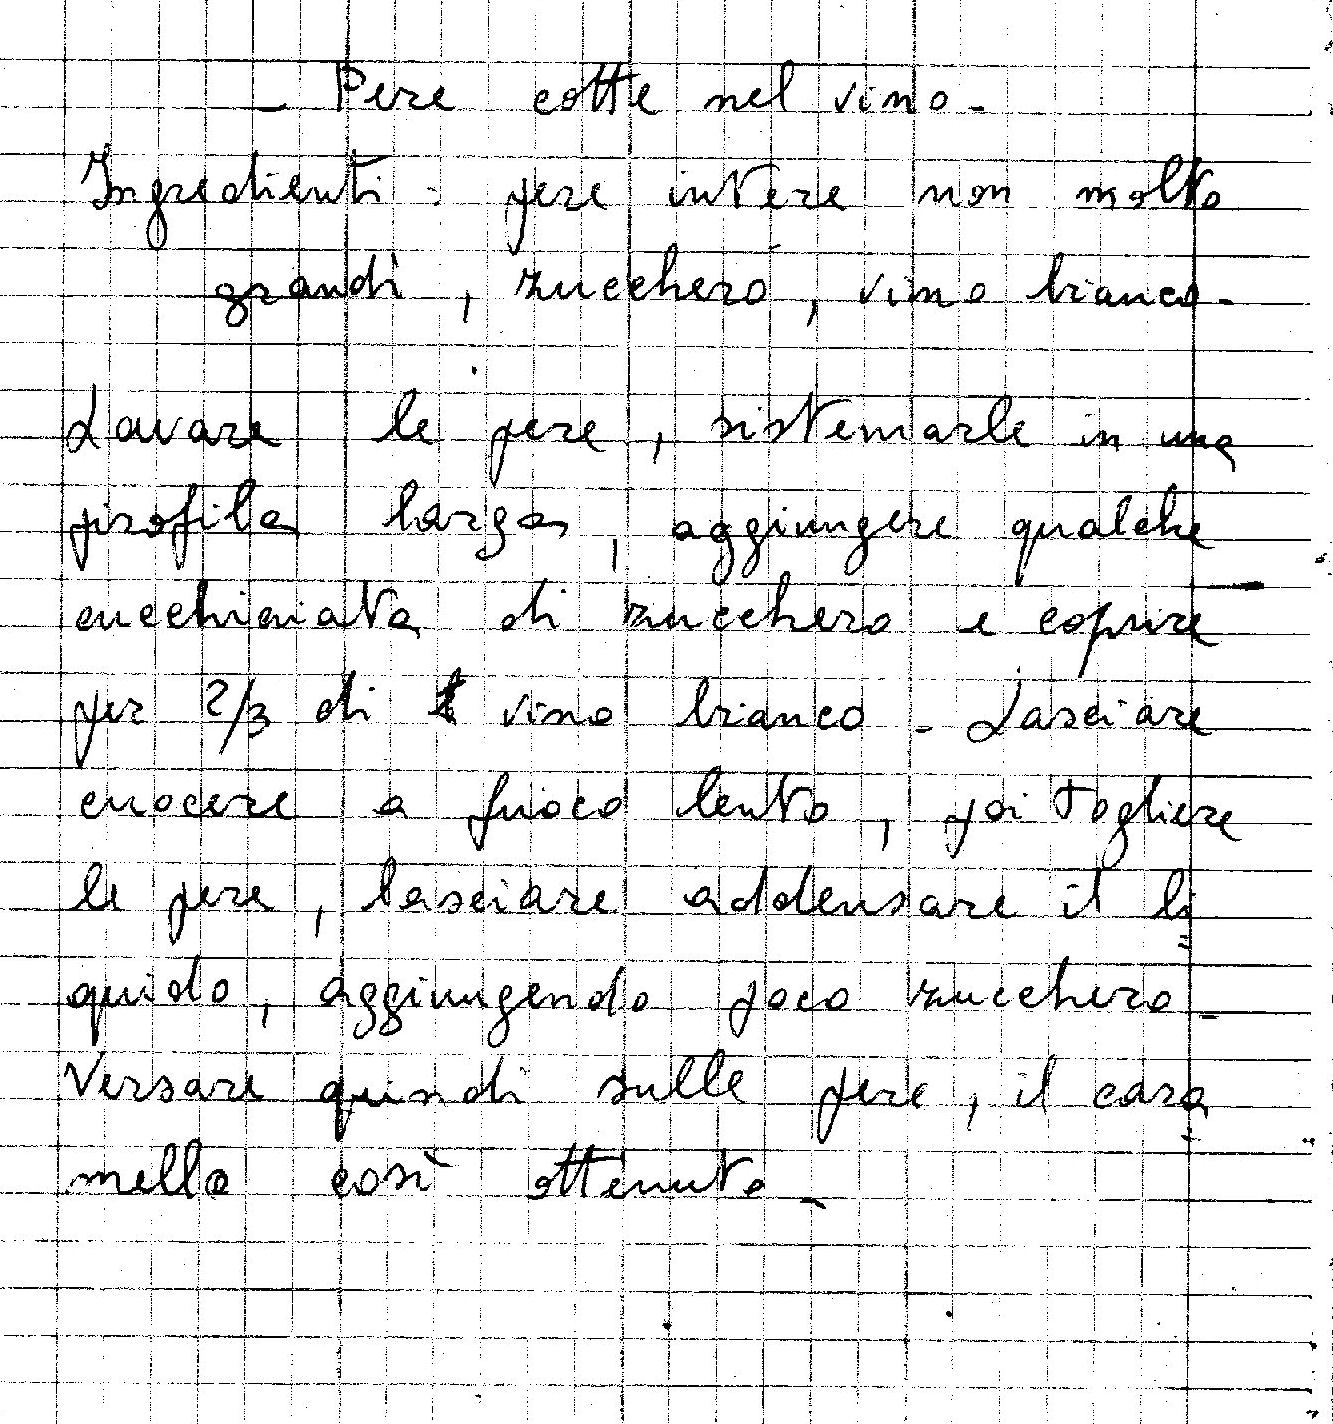 - Pere cotte nel vino -
Ingredienti : pere intere non molto
grandi , zucchero , vino bianco -
Lavare le pere , sistemarle in una
pirofila larga , aggiungere qualche
cucchiaiata di zucchero e coprire
per 2/3 di vino bianco - Lasciare
cuocere a fuoco lento , poi togliere
le pere , lasciare addensare il li=
quido , aggiungendo poco zucchero -
Versare quindi sulle pere , il cara=
mello così ottenuto -